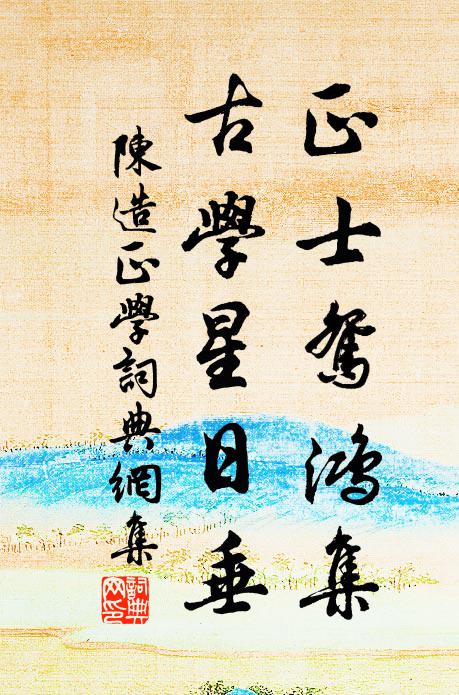 正士鴛鴻集
古學星日垂
陳造正學詞典網集
詞典